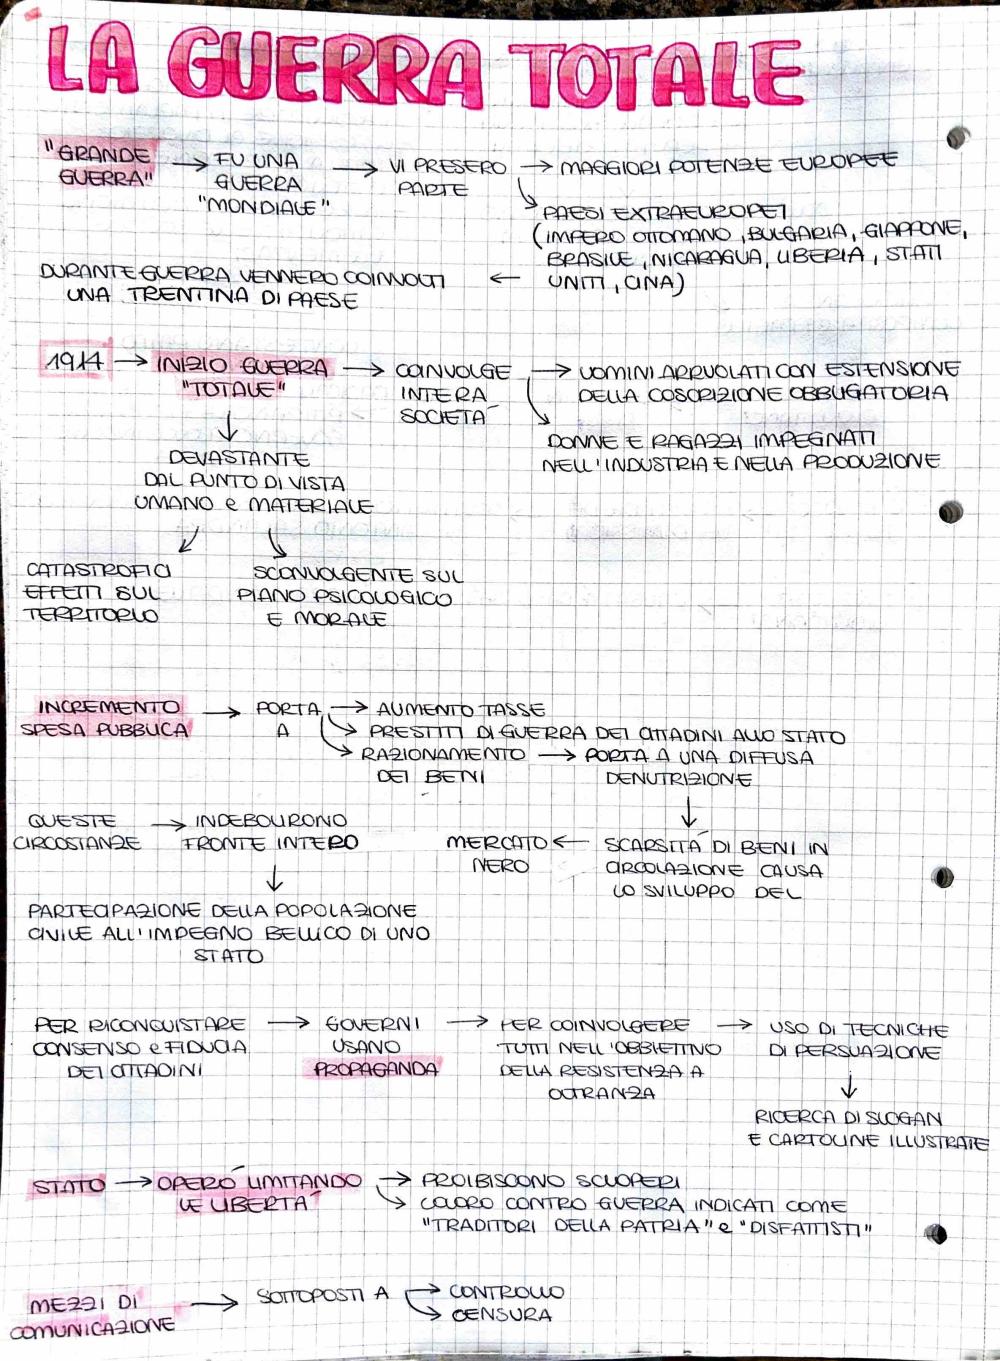 LA GUERRA TOTALE
"GRANDE GUERRA" → FU UNA GUERRA "MONDIALE" → VI PRESERO PARTE → MAGGIORI POTENZE EUROPEE
↳ PAESI EXTRAEUROPEI
(IMPERO OTTOMANO, BULGARIA, GIAPPONE,
BRASILE, NICARAGUA, LIBERIA, STATI
UNITI, CINA)
← DURANTE GUERRA VENNERO COINVOLTI
UNA TRENTINA DI PAESE
1914 → INIZIO GUERRA
"TOTALE"
→ COINVOLGE
INTERA
SOCIETÀ
→ UOMINI ARRUOLATI CON ESTENSIONE
DELLA COSCRIZIONE OBBLIGATORIA
↘ DONNE E RAGAZZI IMPEGNATI
NELL'INDUSTRIA E NELLA PRODUZIONE
↓
DEVASTANTE
DAL PUNTO DI VISTA
UMANO e MATERIALE
↙ CATASTROFICI
EFFETTI SUL
TERRITORIO
↘ SCONVOLGENTE SUL
PIANO PSICOLOGICO
E MORALE
INCREMENTO
SPESA PUBBLICA
→ PORTA
A
→ AUMENTO TASSE
↘ PRESTITI DI GUERRA DEI CITTADINI ALLO STATO
↘ RAZIONAMENTO
DEI BENI
→ PORTA A UNA DIFFUSA
DENUTRIZIONE
↓
SCARSITÀ DI BENI IN
CIRCOLAZIONE CAUSA
LO SVILUPPO DEL
← MERCATO
NERO
QUESTE
CIRCOSTANZE
→ INDEBOLIRONO
FRONTE INTERO
↓
PARTECIPAZIONE DELLA POPOLAZIONE
CIVILE ALL'IMPEGNO BELLICO DI UNO
STATO
PER RICONQUISTARE
CONSENSO e FIDUCIA
DEI CITTADINI
→ GOVERNI
USANO
PROPAGANDA
→ PER COINVOLGERE
TUTTI NELL'OBBIETTIVO
DELLA RESISTENZA A
OLTRANZA
→ USO DI TECNICHE
DI PERSUAZIONE
↓
RICERCA DI SLOGAN
E CARTOLINE ILLUSTRATE
STATO → OPERÒ LIMITANDO
LE LIBERTÀ
→ PROIBISCONO SCIOPERI
↘ COLORO CONTRO GUERRA INDICATI COME
"TRADITORI DELLA PATRIA" e "DISFATTISTI"
MEZZI DI
COMUNICAZIONE
→ SOTTOPOSTI A
→ CONTROLLO
↘ CENSURA